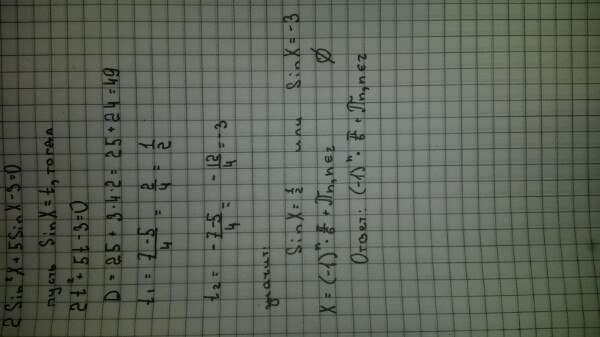 2 Sin²X + 5 Sin X - 3 = 0
пусть Sin X = t, тогда
2t² + 5t - 3 = 0
D = 25 + 3·4·2 = 25 + 24 = 49
t₁ = (7-5)/4 = 2/4 = 1/2
t₂ = (-7-5)/4 = -12/4 = -3
значит:
Sin X = 1/2 или Sin X = -3
X = (-1)ⁿ · π/6 + πn, n∈z ∅
Ответ: (-1)ⁿ · π/6 + πn, n∈z